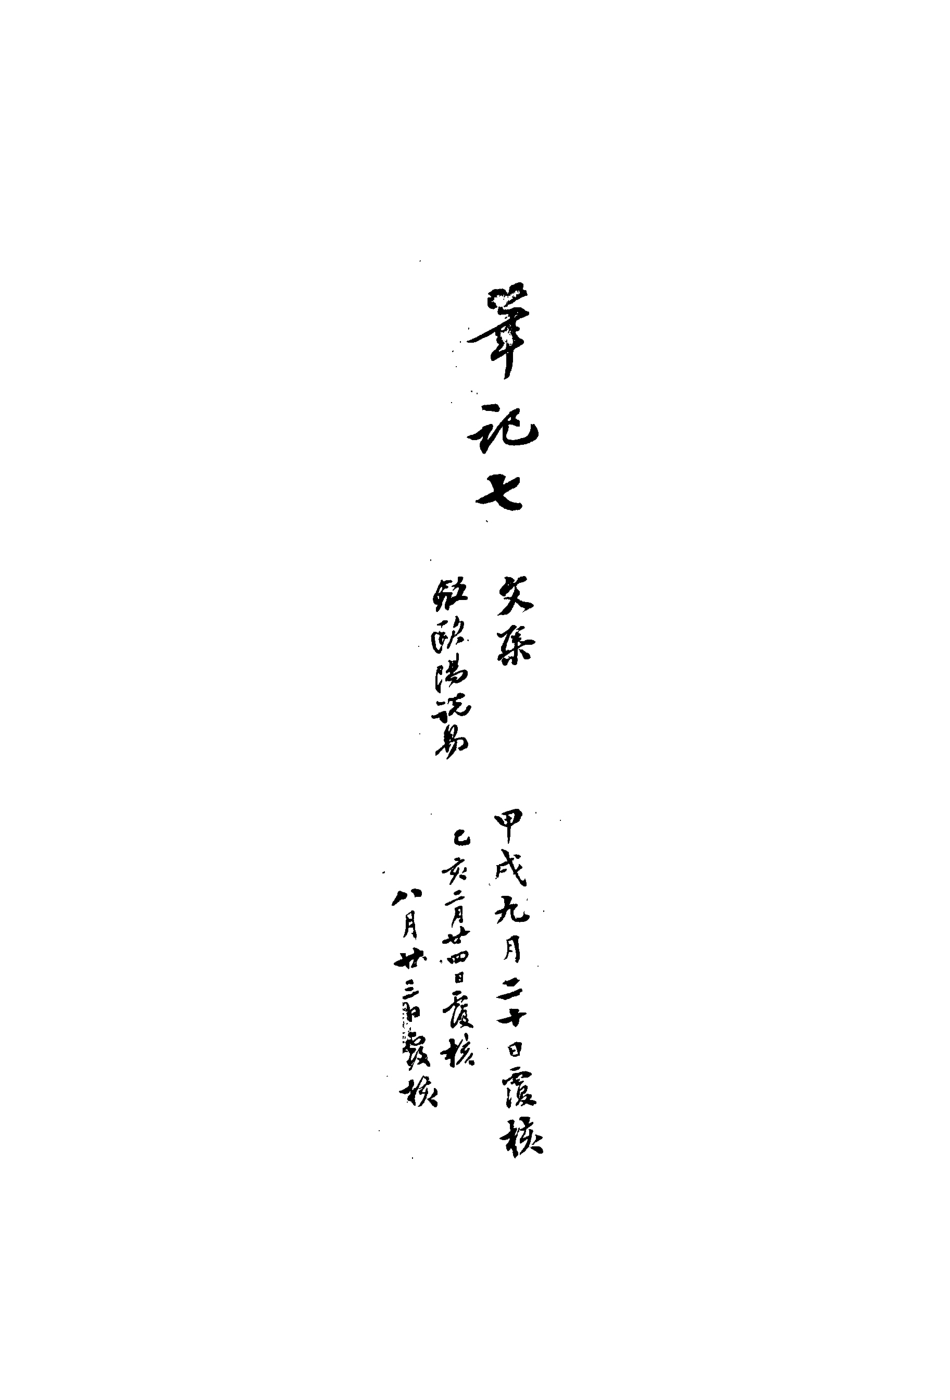 筆記七　文集　甲戌九月二十日覆核
歐陽說易　乙亥二月廿四日覆核
八月廿三日覆核